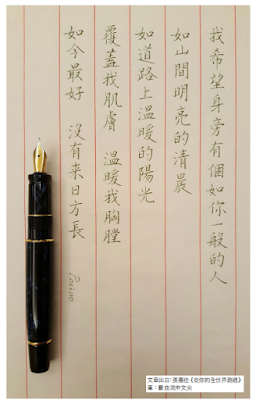 我希望身旁有個如你一般的人
如山間明亮的清晨
如道路上溫暖的陽光
覆蓋我肌膚 溫暖我胸膛
如今最好 沒有来日方長
文章出自:張嘉佳《從你的全世界路過》
筆:斷血流中文尖